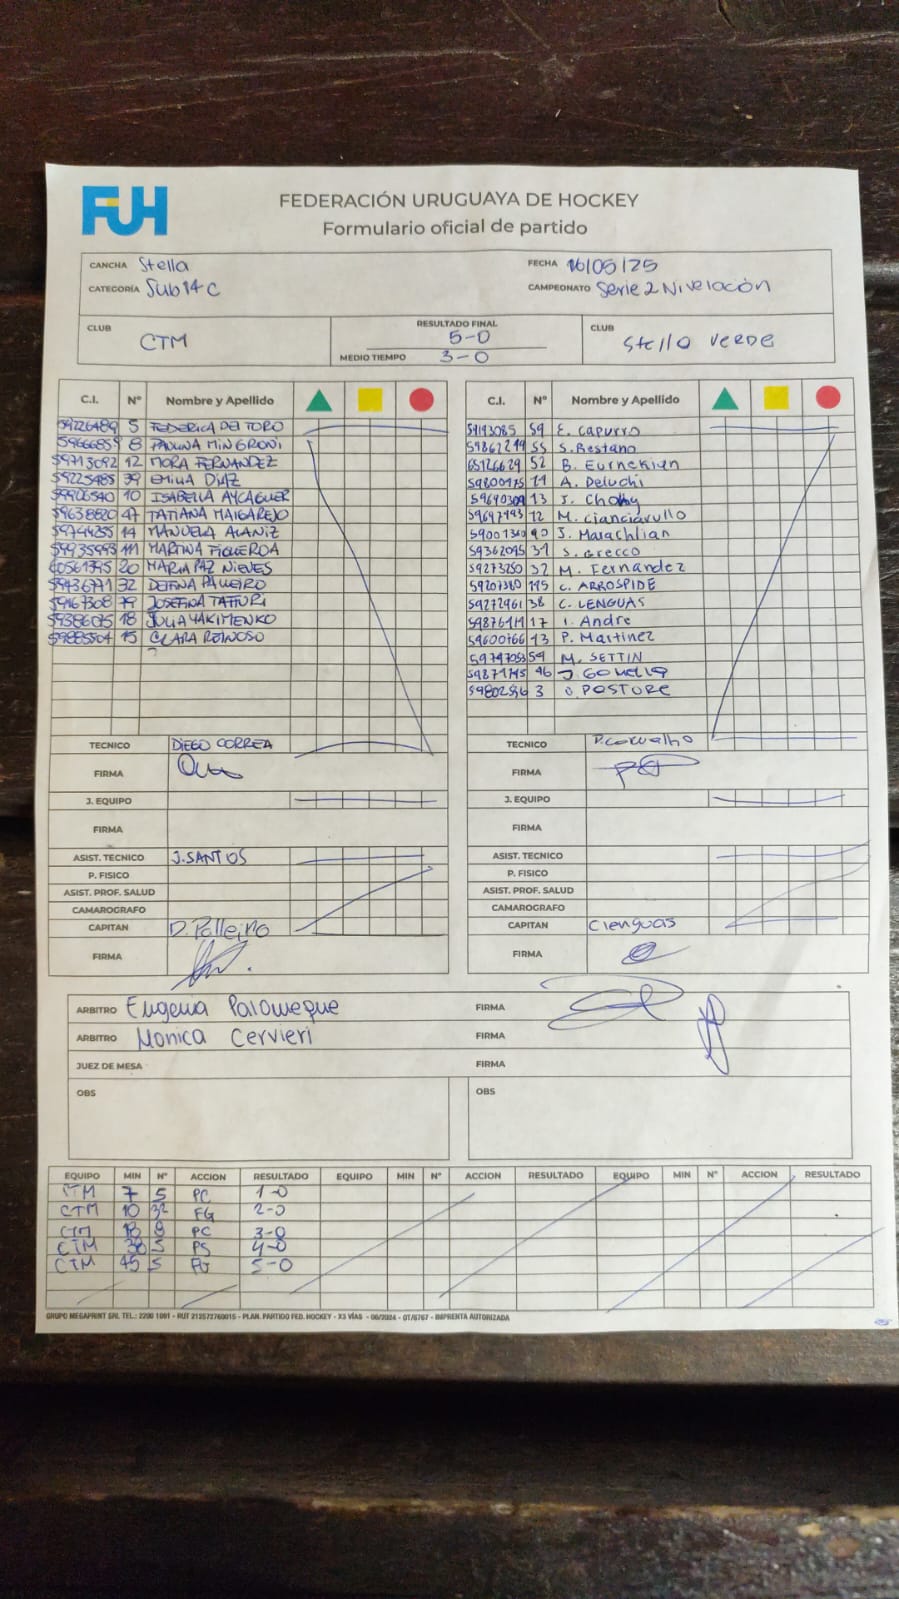 FUH
FEDERACIÓN URUGUAYA DE HOCKEY
Formulario oficial de partido
CANCHA Stella FECHA 16/05/25
CATEGORÍA Sub14 C CAMPEONATO Serie 2 Nivelación
CLUB CTM RESULTADO FINAL 5-0 CLUB Stella Verde
MEDIO TIEMPO 3-0
C.I. Nº Nombre y Apellido C.I. Nº Nombre y Apellido
59226489 5 FEDERICA DEL TORO
5966685 8 PAULINA MINGRONI
59713092 12 MORA FERNANDEZ
59225485 39 EMILIA DIAZ
59906540 10 ISABELLA AYCAGUER
59638820 47 TATIANA MALGAREJO
59744255 14 MANUELA ALANIZ
59935993 111 MARTINA FIGUEROA
60561395 20 MARIA PAZ NIEVES
59436771 32 DELFINA PALLEIRO
59167308 79 JOSEFINA TAFFURI
59386075 18 JULIA YAKIMENKO
59885504 15 CLARA REINOSO
59193085 59 E. Capurro
59862219 55 S. Restano
65126629 52 B. Eurnekian
59800175 21 A. Peluchi
59640309 13 J.
59697193 12 M. Cianciarullo
59001360 90 J. Marachlian
59362095 31 S. Grecco
59273250 32 M. Fernandez
59207380 115 C. ARROSPIDE
59272961 38 C. LENGUAS
5987611 17 I. Andre
59600766 13 P. Martinez
59797053 59 M. SETTIN
59871745 46 J
5980256 3 POSTURE
TECNICO DIEGO CORREA TECNICO P. Carvalho
FIRMA FIRMA
J. EQUIPO J. EQUIPO
FIRMA FIRMA
ASIST. TECNICO J. SANTOS ASIST. TECNICO
P. FISICO P. FISICO
ASIST. PROF. SALUD ASIST. PROF. SALUD
CAMAROGRAFO CAMAROGRAFO
CAPITAN D. Palleiro CAPITAN C lenguas
FIRMA FIRMA
ARBITRO Eugenia Palomeque FIRMA
ARBITRO Monica Cervieri FIRMA
JUEZ DE MESA FIRMA
OBS OBS
EQUIPO MIN Nº ACCION RESULTADO EQUIPO MIN Nº ACCION RESULTADO EQUIPO MIN Nº ACCION RESULTADO
CTM 7 5 PC 1-0
CTM 10 32 FG 2-0
CTM 18 8 PC 3-0
CTM 38 5 PS 4-0
CTM 45 5 FG 5-0
GRUPO MEGAPRINT SRL TEL.: 2200 1001 - RUT 212572760015 - PLAN. PARTIDO FED. HOCKEY - X3 VÍAS - 06/2024 - OT/6767 - IMPRENTA AUTORIZADA